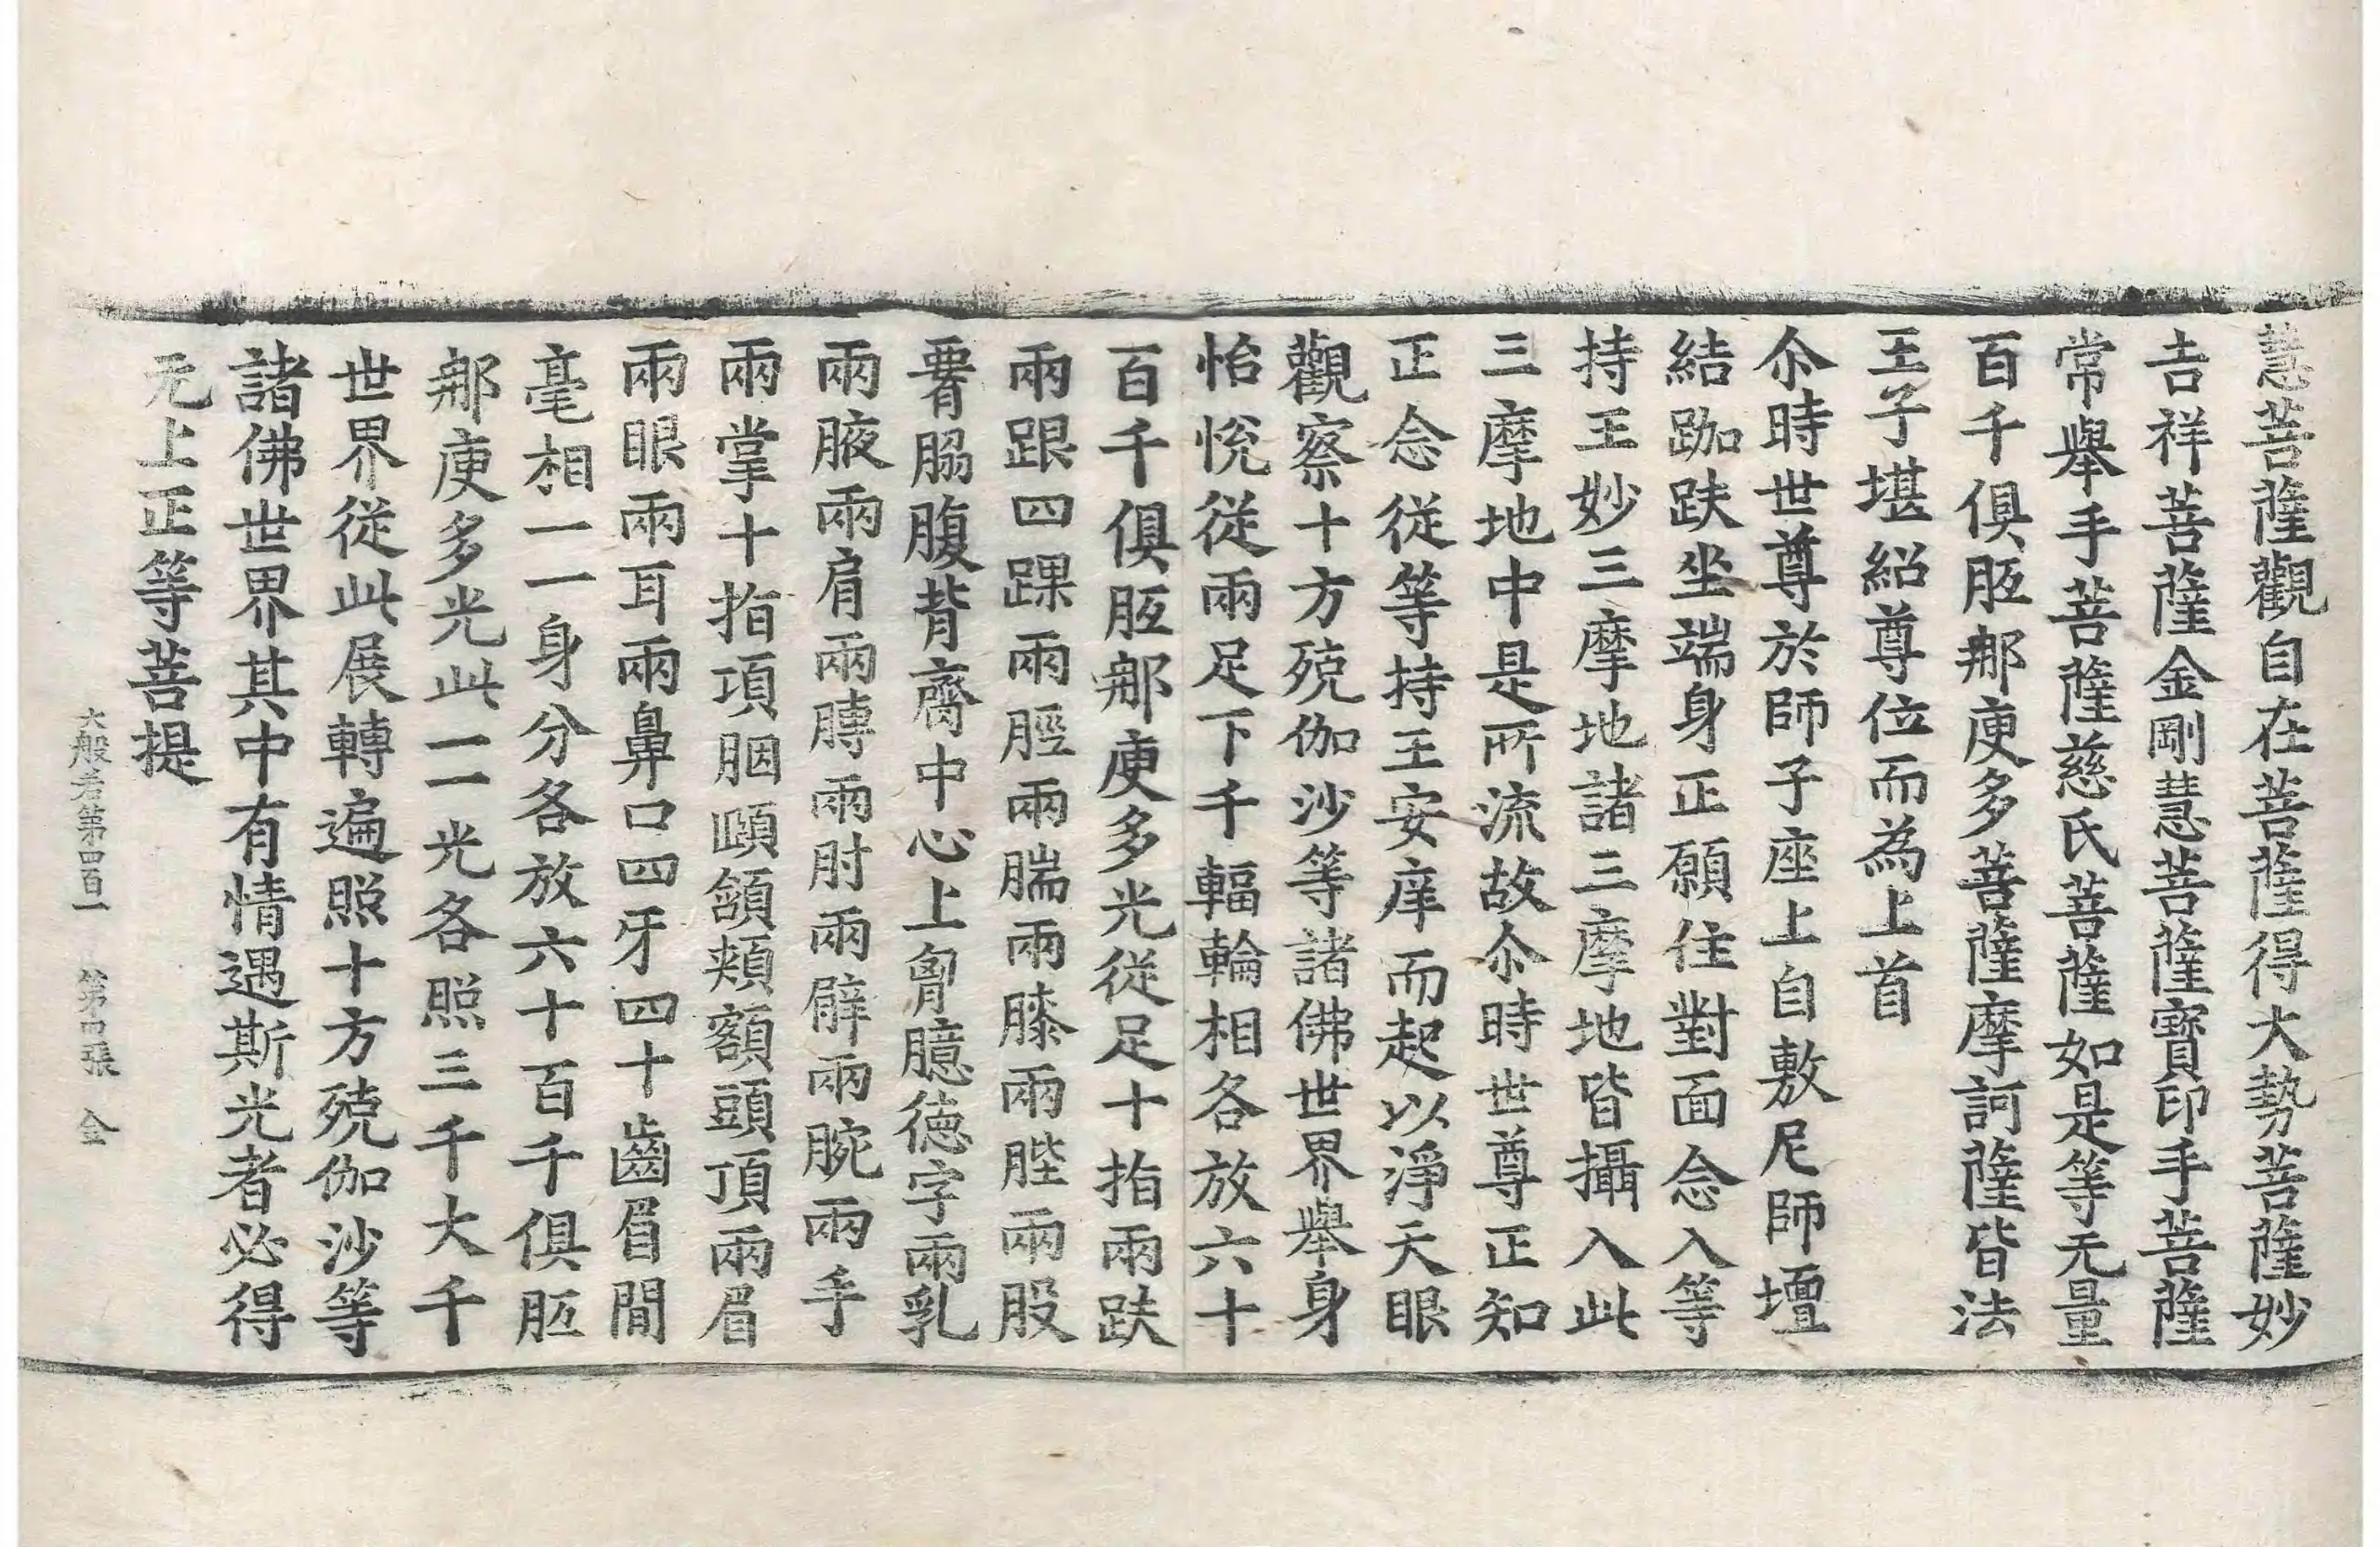 慧菩薩觀自在菩薩得大勢菩薩妙
吉祥菩薩金剛慧菩薩寶印手菩薩
常舉手菩薩慈氏菩薩如是等无量
百千俱胝那庾多菩薩摩訶薩皆法
王子堪紹尊位而為上首
尒時世尊於師子座上自敷尼師壇
結跏趺坐端身正願住對面念入等
持王妙三摩地諸三摩地皆攝入此
三摩地中是所流故尒時世尊正知
正念從等持王安庠而起以淨天眼
觀察十方殑伽沙等諸佛世界舉身
怡悅從兩足下千輻輪相各放六十
百千俱胝那庾多光從足十指兩趺
兩跟四踝兩脛兩腨兩膝兩䏶兩股
署脇腹背齊中心上𦚾臆德字兩乳
兩腋兩肩兩膊兩肘兩臂兩腕兩手
兩掌十指項胭頤頷頰額頭頂兩眉
兩眼兩耳兩鼻口四牙四十齒眉間
毫相一一身分各放六十百千俱胝
那庾多光此一一光各照三千大千
世界從此展轉遍照十方殑伽沙等
諸佛世界其中有情遇斯光者必得
无上正等菩提
大般若第四百一　第四張　金